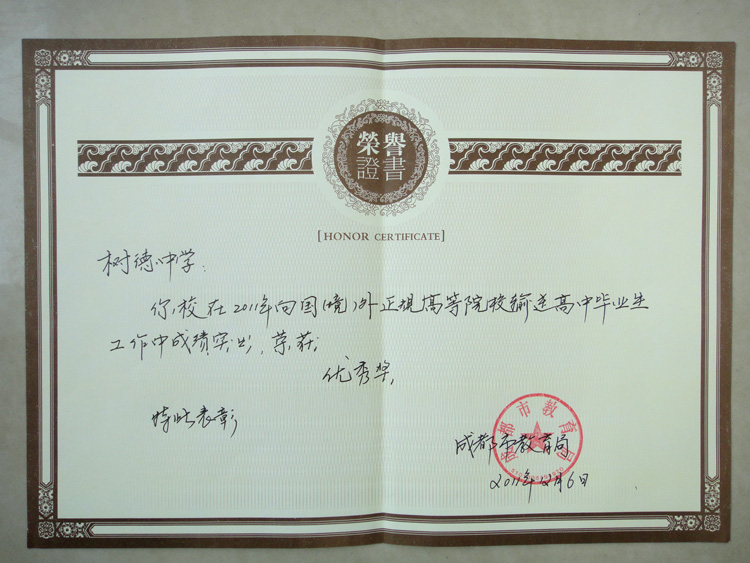 榮譽
證書
[HONOR CERTIFICATE]
树德中学:
你校在2011年向国(境)外正规高等院校输送高中毕业生
工作中成绩突出,荣获:
优秀奖,
特此表彰
成都市教育局
成都市教育局
2011年12月6日